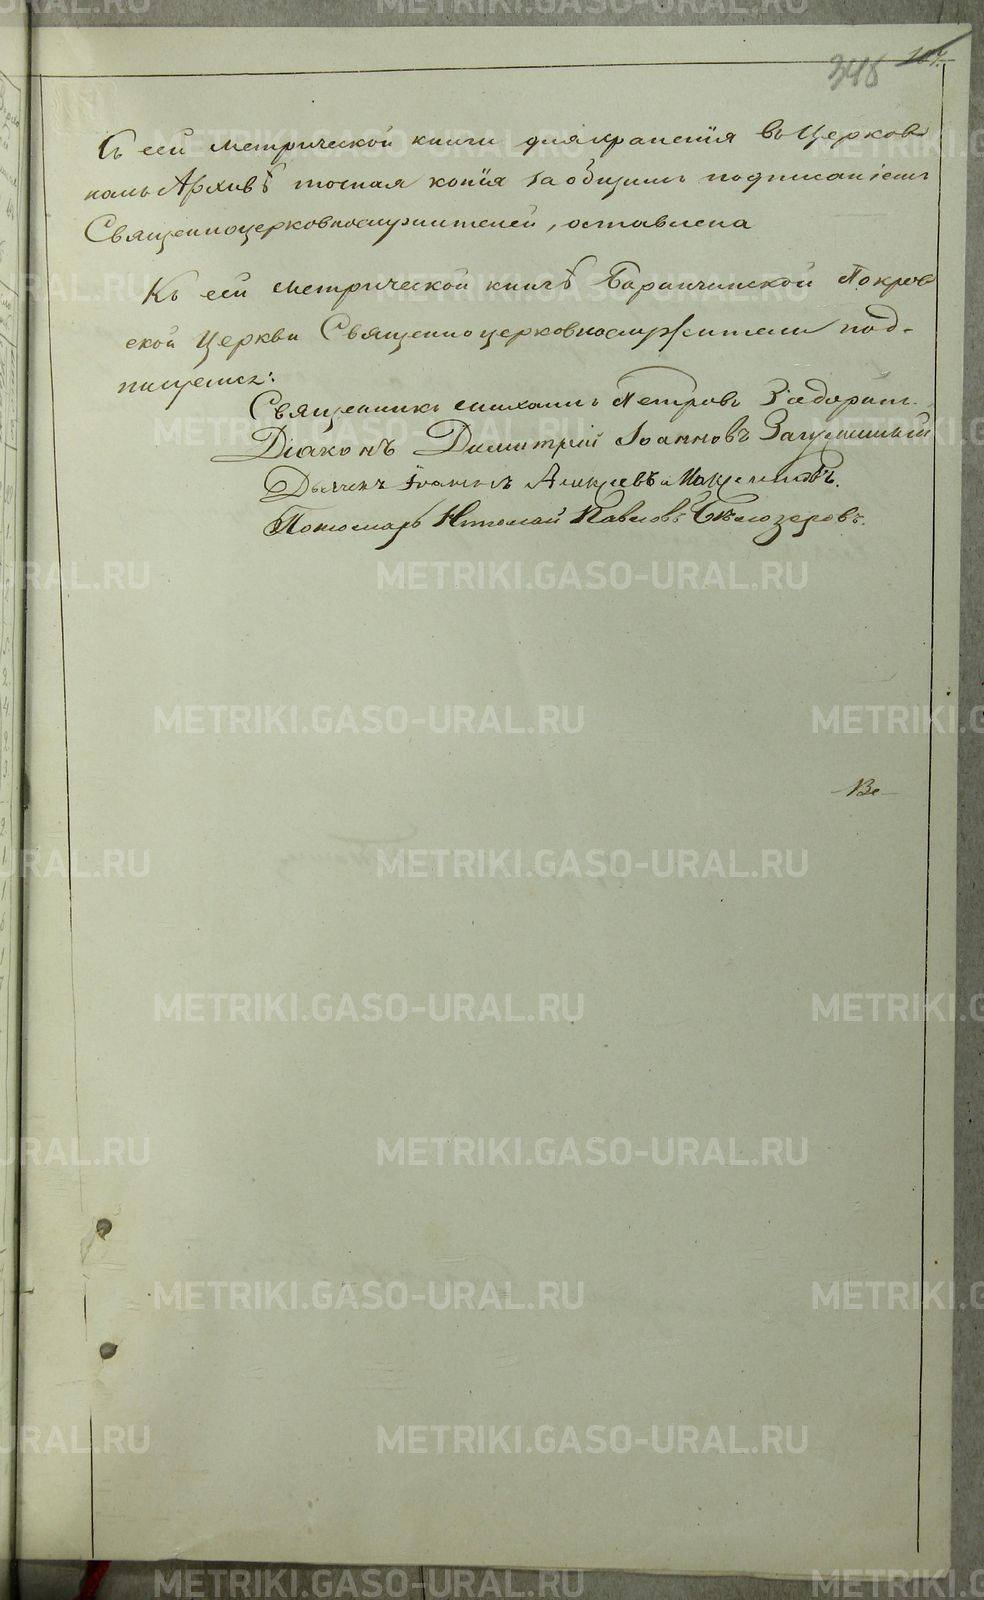 348 107.
Съ сей Метрической книги для храненія въ Церков
номъ Архивѣ точная копія за общимъ подписаніемъ
Священноцерковнослужителей, оставлена
Къ сей Метрической книгѣ Баранчинской Покров
ской Церкви Священноцерковнослужители под-
писуемся:
Священникъ Михаилъ Петровъ
Діаконъ Димитрій Іоанновъ
Дьячекъ Іоаннъ
Пономарь Николай Павловъ Бѣлозеровъ.
Ве
METRIKI.GASO-URAL.RU